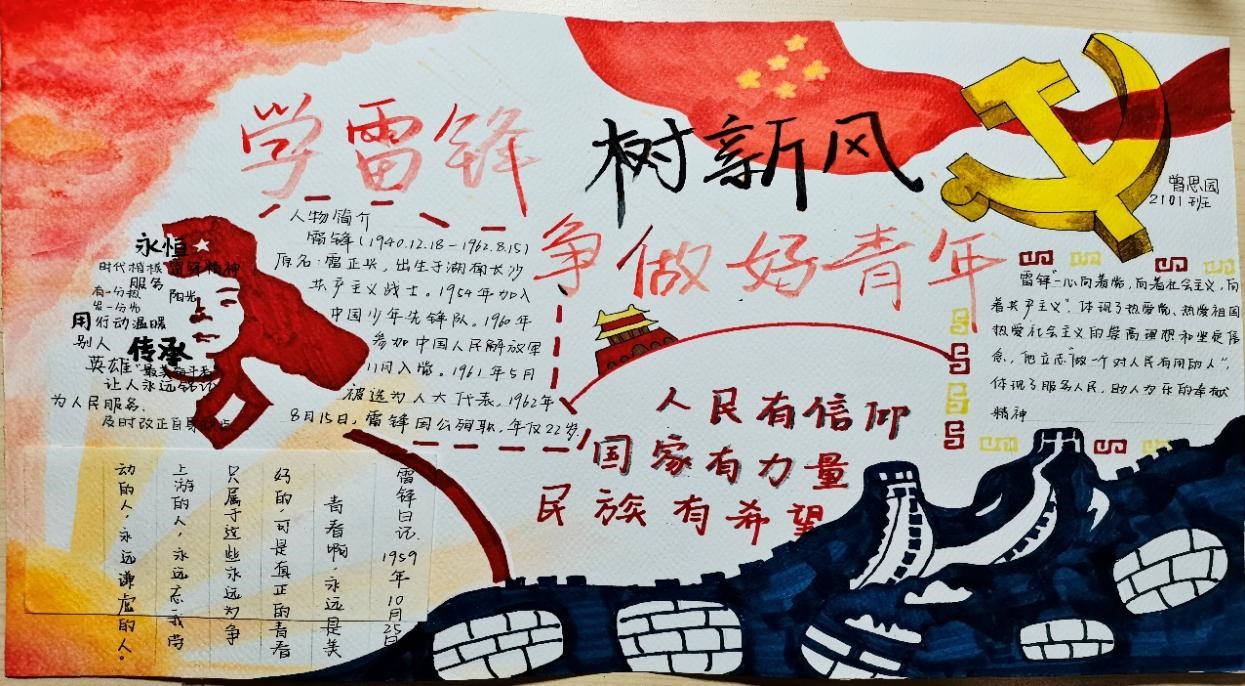 学雷锋 树新风
争做好青年
曾思园
2101班
人物简介
雷锋(1940.12.18-1962.8.15)
原名:雷正兴,出生于湖南长沙
共产主义战士。1954年加入
中国少年先锋队。1960年
参加中国人民解放军
11月入党。1961年5月
被选为人大代表,1962年
8月15日,雷锋因公殉职,年仅22岁.
永恒
时代楷模 雷锋精神
服务
有一分热
阳光
发一分光
用行动温暖
别人
传承
英雄"最美奋斗者"
让人永远铭记
为人民服务.
及时改正自身缺点
雷锋日记.1959年10月25日
青春啊,永远是美
好的,可是真正的青春
只属于这些永远力争
上游的人,永远忘我劳
动的人,永远谦虚的人。
人民有信仰
国家有力量
民族有希望
雷锋"一心向着党,向着社会主义,向
着共产主义".体现了热爱党、热爱祖国
热爱社会主义的崇高理想和坚定信
念,他立志"做一个对人民有用的人",
体现了服务人民、助人为乐的奉献
精神